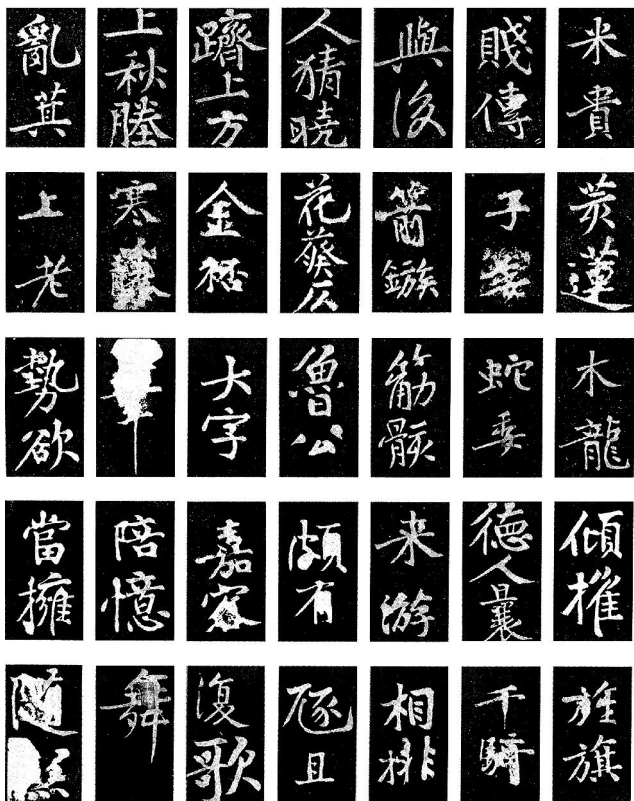 米貴
賤傳
與後
人猜曉
躋上方
上秋塍
亂萁
蓮
子
箭鏃
花葵仄
金
寒藤
上老
木龍
蛇委
筋骸
魯公
大字
勢欲
傾摧
德人曩
来游
頗有
嘉客
陪憶
當擁
旌旗
千騎
相排
豗且
復歌
舞
隨